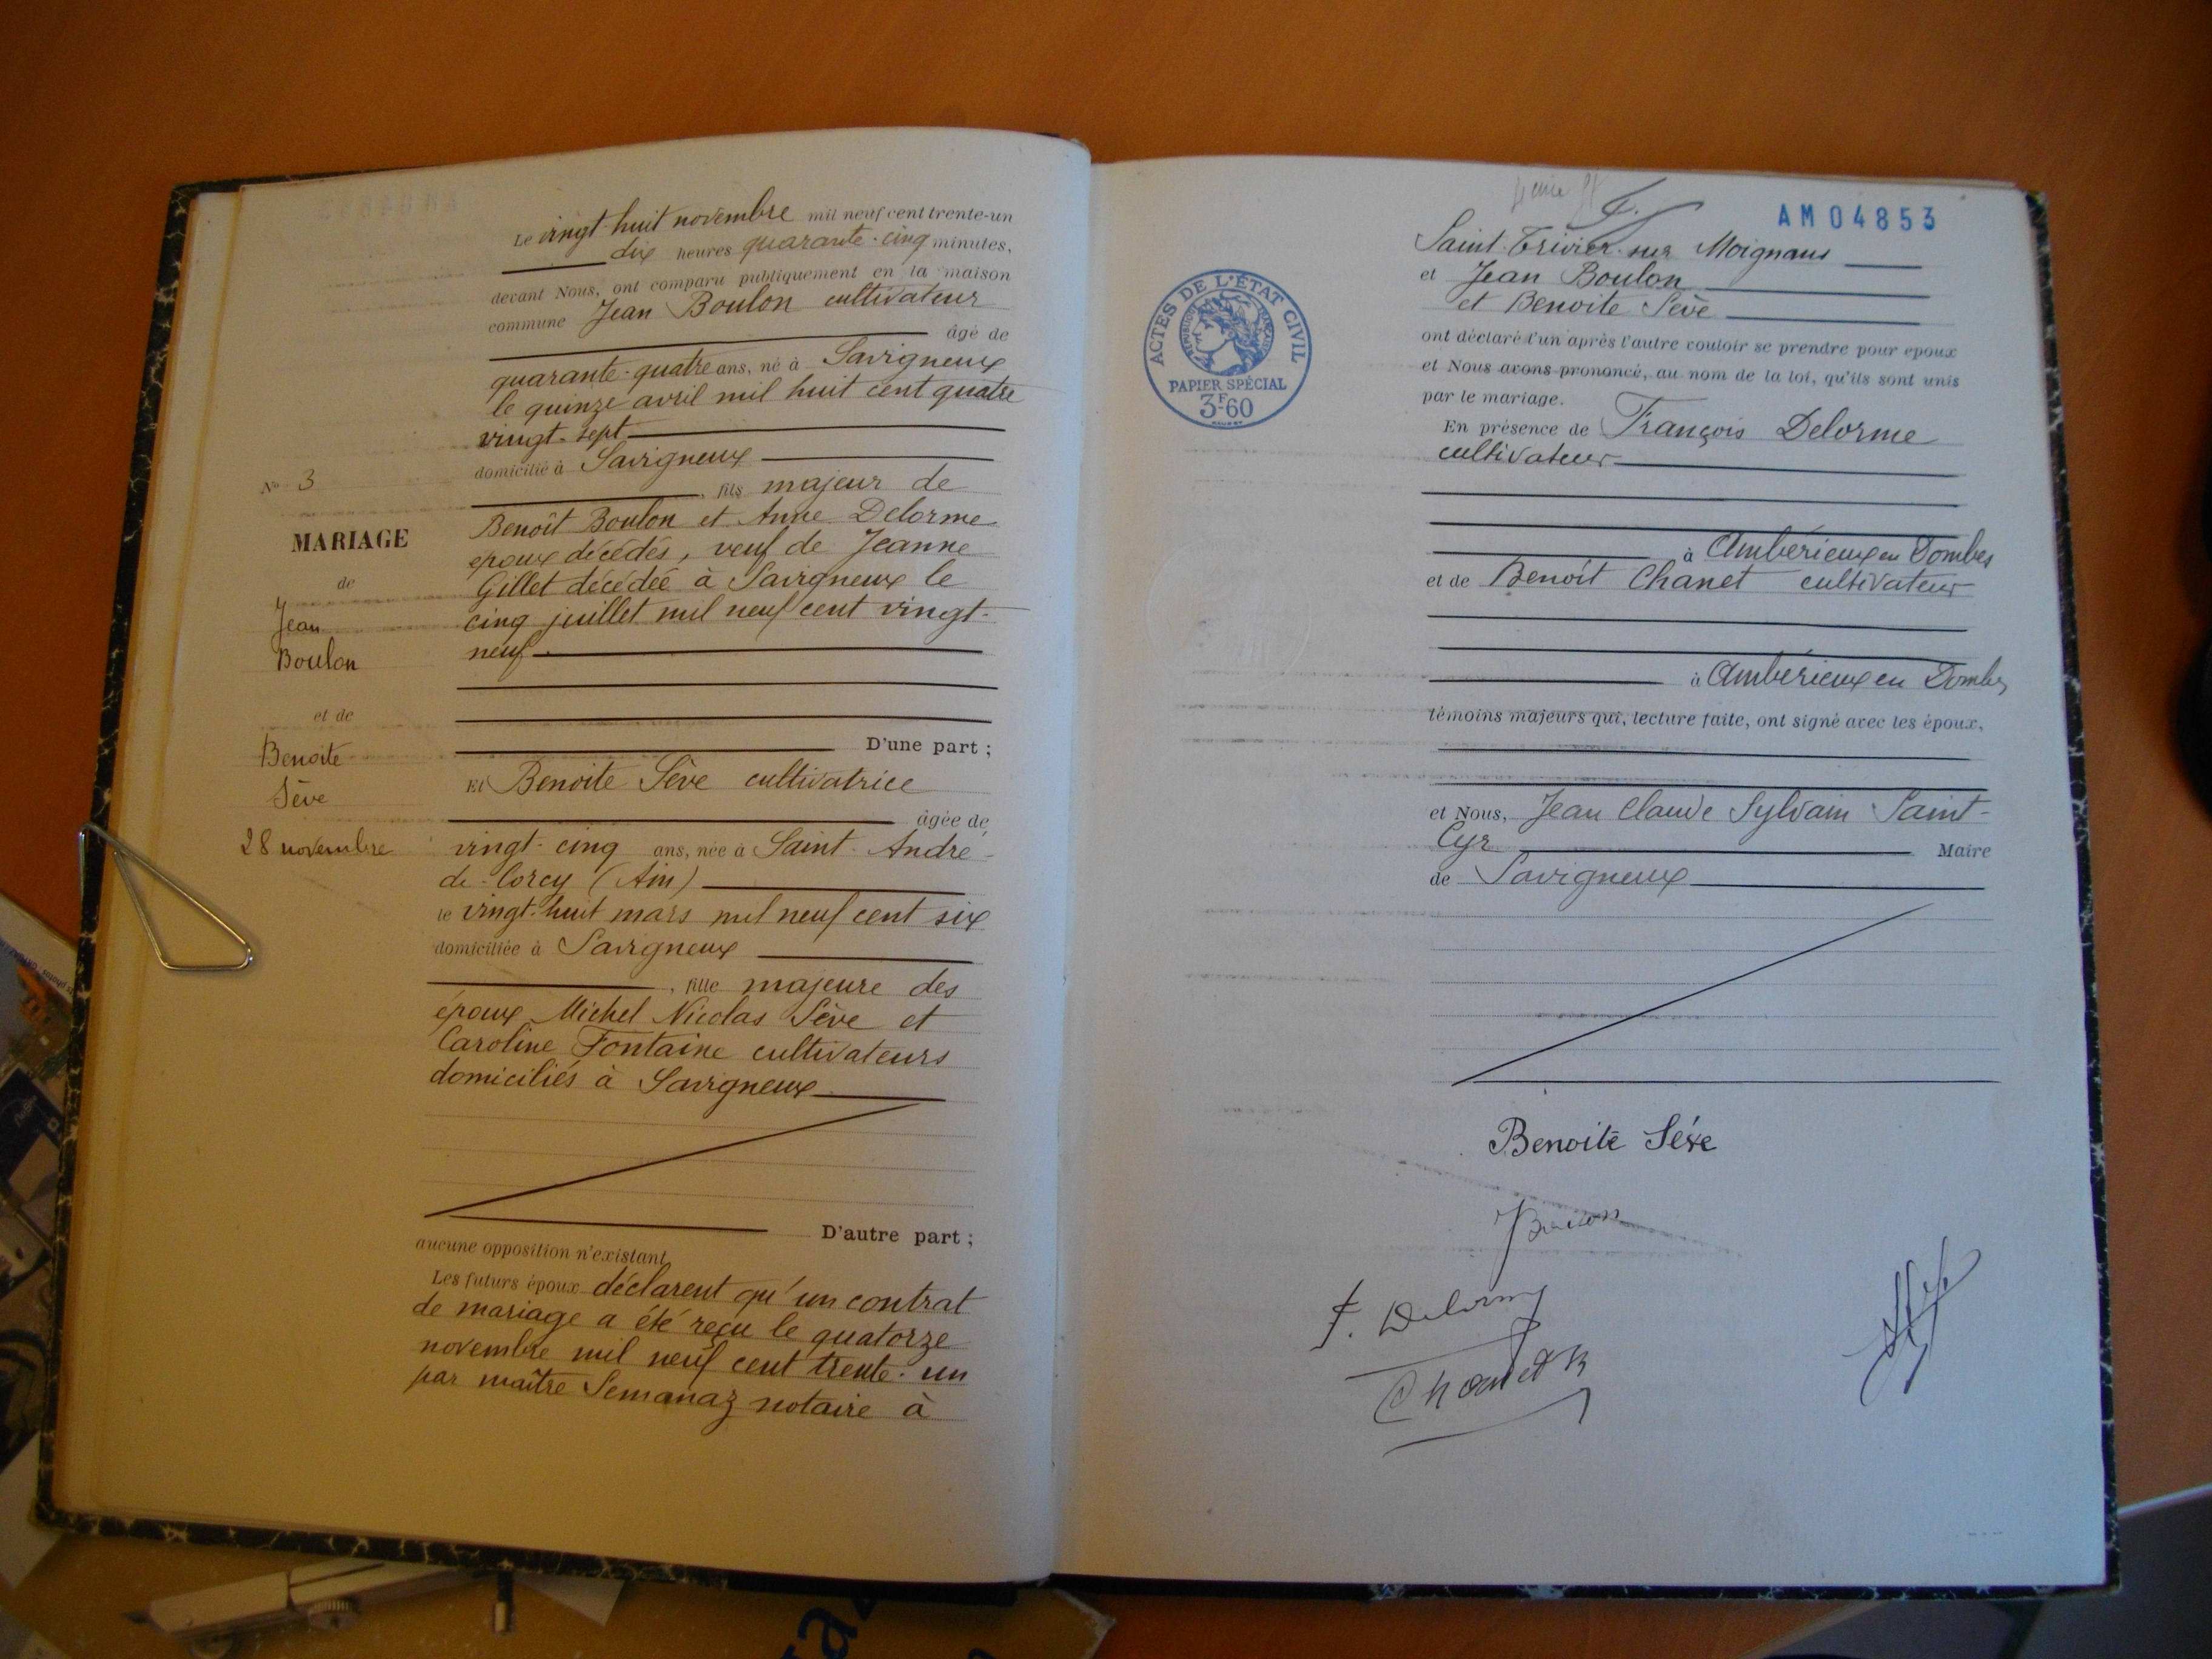 Le vingt-huit novembre mil neuf cent trente-un
dix heures quarante-cinq minutes,
devant Nous, ont comparu publiquement en la maison
commune Jean Boulon cultivateur
âgé de
quarante-quatre ans, né à Savigneux
le quinze avril mil huit cent quatre
vingt-sept
domicilié à Savigneux
, fils majeur de
Benoît Boulon et Anne Delorme
époux décédés, veuf de Jeanne
Gillet décédée à Savigneux le
cinq juillet mil neuf cent vingt-
neuf
D'une part ;
Et Benoite Sève cultivatrice
âgée de
vingt-cinq ans, née à Saint-André-
de-Corcy (Ain)
le vingt-huit mars mil neuf cent six
domiciliée à Savigneux
, fille majeure des
époux Michel Nicolas Sève et
Caroline Fontaine cultivateurs
domiciliés à Savigneux
D'autre part ;
aucune opposition n'existant
Les futurs époux déclarent qu'un contrat
de mariage a été reçu le quatorze
novembre mil neuf cent trente-un
par maître Semanaz notaire à
No 3
MARIAGE
de
Jean
Boulon
et de
Benoite
Sève
28 novembre
AM 04853
Saint-Trivier-sur Moignans
et Jean Boulon
et Benoite Sève
ont déclaré l'un après l'autre vouloir se prendre pour époux
et Nous avons prononcé, au nom de la loi, qu'ils sont unis
par le mariage.
En présence de François Delorme
cultivateur
à Ambérieux en Dombes
et de Benoît Chanet cultivateur
à Ambérieux en Dombes
témoins majeurs qui, lecture faite, ont signé avec les époux,
et Nous, Jean Claude Sylvain Saint-
Cyr Maire
de Savigneux
ACTES DE L'ÉTAT CIVIL
RÉPUBLIQUE FRANÇAISE
PAPIER SPÉCIAL
3F60
Benoite Sève
J Boulon
F. Delorme
Chanet B